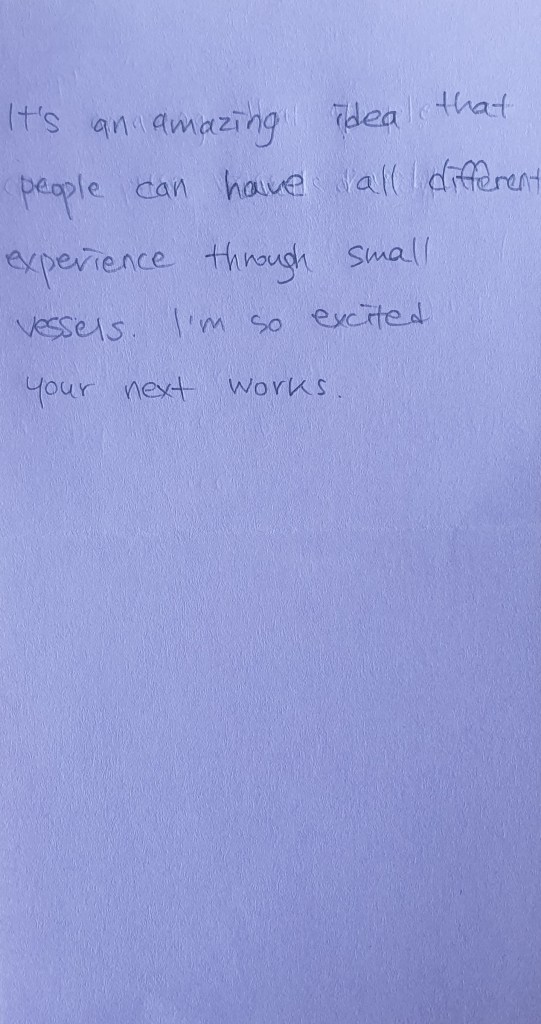 It's an amazing idea that
people can have all different
experience through small
vessels. I'm so excited
your next works.